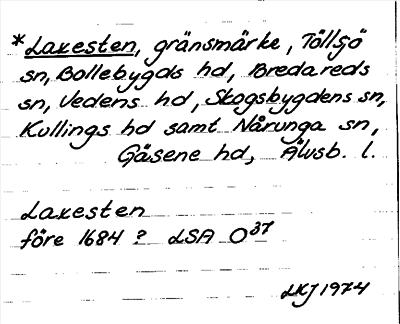 *Laxesten, gränsmärke, Töllsjö
sn, Bollebygds hd, Bredareds
sn, Vedens hd, Skogsbygdens sn,
Kullings hd samt Nårunga sn,
Gäsene hd, Älvsb. l.
Laxesten
före 1684 ? LSA O³⁷
LKJ 1974